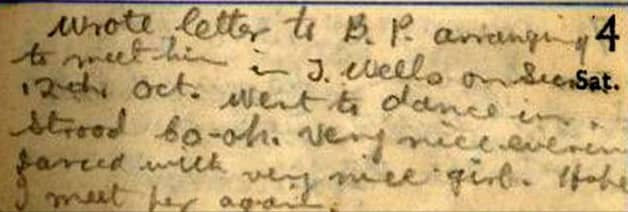 Wrote letter to B. P. arranging 4
to meet him in T. Wells on Sat.
12th Oct. Went to dance in
Strood Co-op. Very nice evenin
danced with very nice girl. Hope
I meet her again.